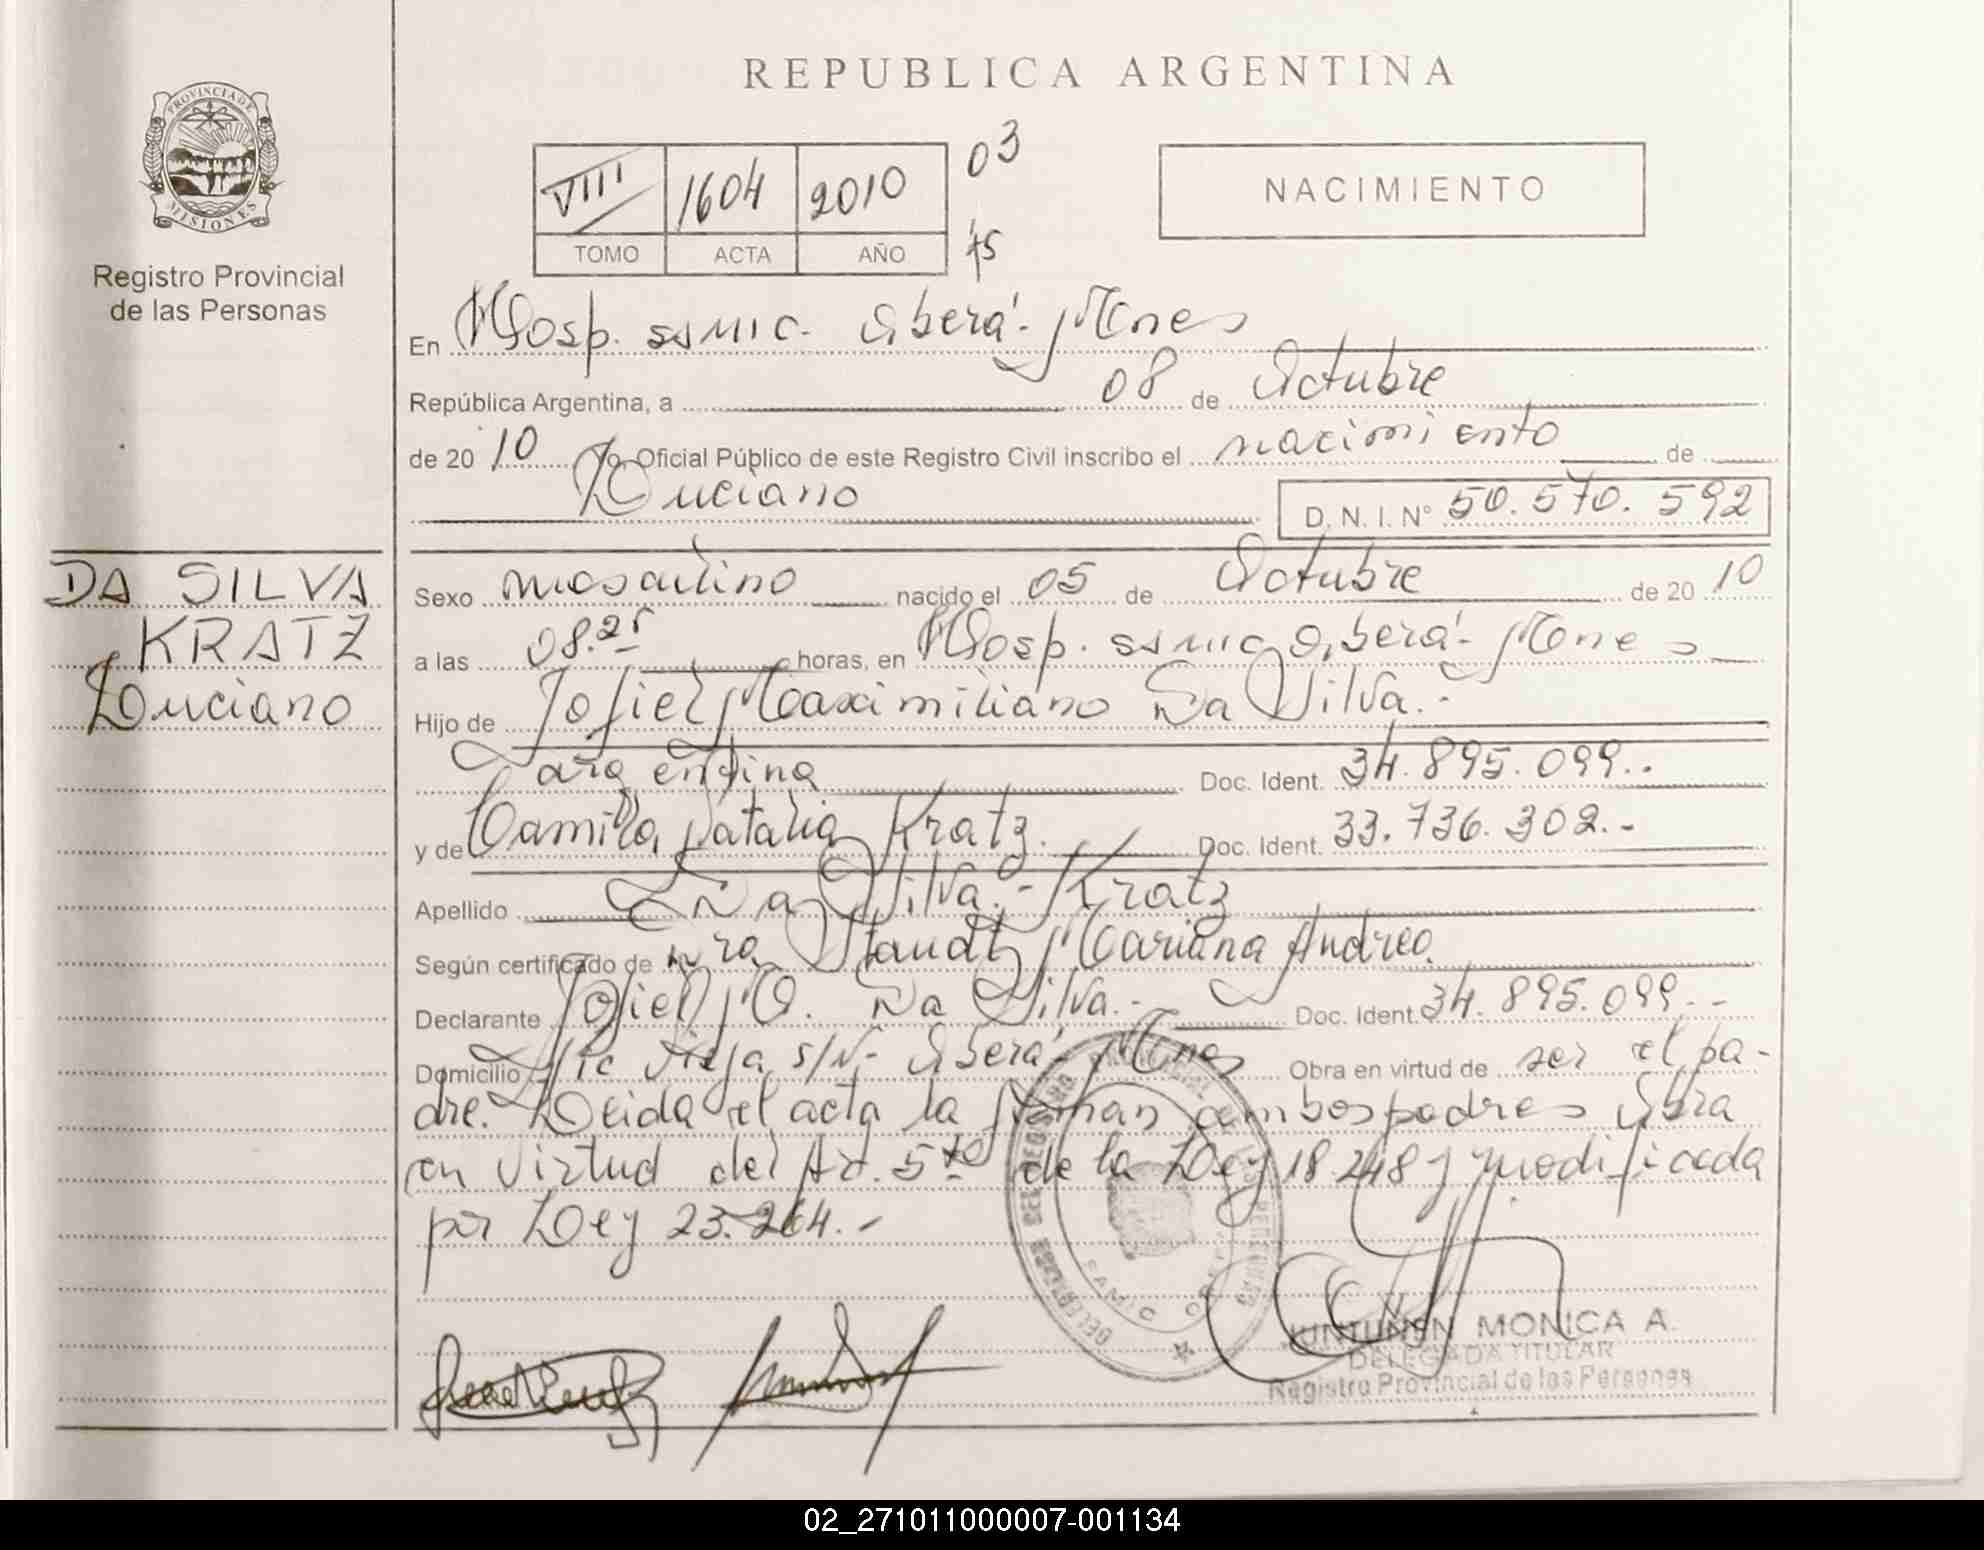 REPUBLICA ARGENTINA
PROVINCIA DE MISIONES
Registro Provincial
de las Personas
VIII 1604 2010 03
TOMO ACTA AÑO 75
NACIMIENTO
En Hosp. SSMIC. Oberá - Mnes
República Argentina, a 08 de Octubre
de 20 10 Yo, Oficial Público de este Registro Civil inscribo el nacimiento de
Luciano D. N. I. N° 50.570.592
DA SILVA
KRATZ
Luciano
Sexo masculino nacido el 05 de Octubre de 20 10
a las 08.25 horas, en Hosp. SSMIC Oberá - Mnes
Hijo de Jofiel Maximiliano Da Silva.-
argentina Doc. Ident. 34.895.099.-
y de Camila Natalia Kratz. Doc. Ident. 33.736.302.-
Apellido Da Silva - Kratz
Según certificado de Dra Staudt Mariana Andrea.
Declarante Jofiel M. Da Silva.- Doc. Ident. 34.895.099.-
Domicilio Pic Vieja s/N- Oberá - Mnes Obra en virtud de ser el pa-
dre. Leida el acta la firman ambos padres Obra
en virtud del Art. 5to de la Ley 18.248 y modificada
por Ley 23.264.-
JUNTUNEN MONICA A.
DELEGADA TITULAR
Registro Provincial de las Personas
02_271011000007-001134